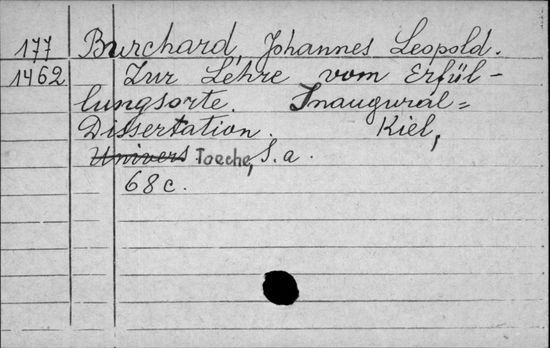 177 Burchard, Johannes Leopold.
1462 Zur Lehre vom Erfül-
lungsorte. Inaugural=
Dissertation. Kiel,
Univers Toeche, S.a.
68c.